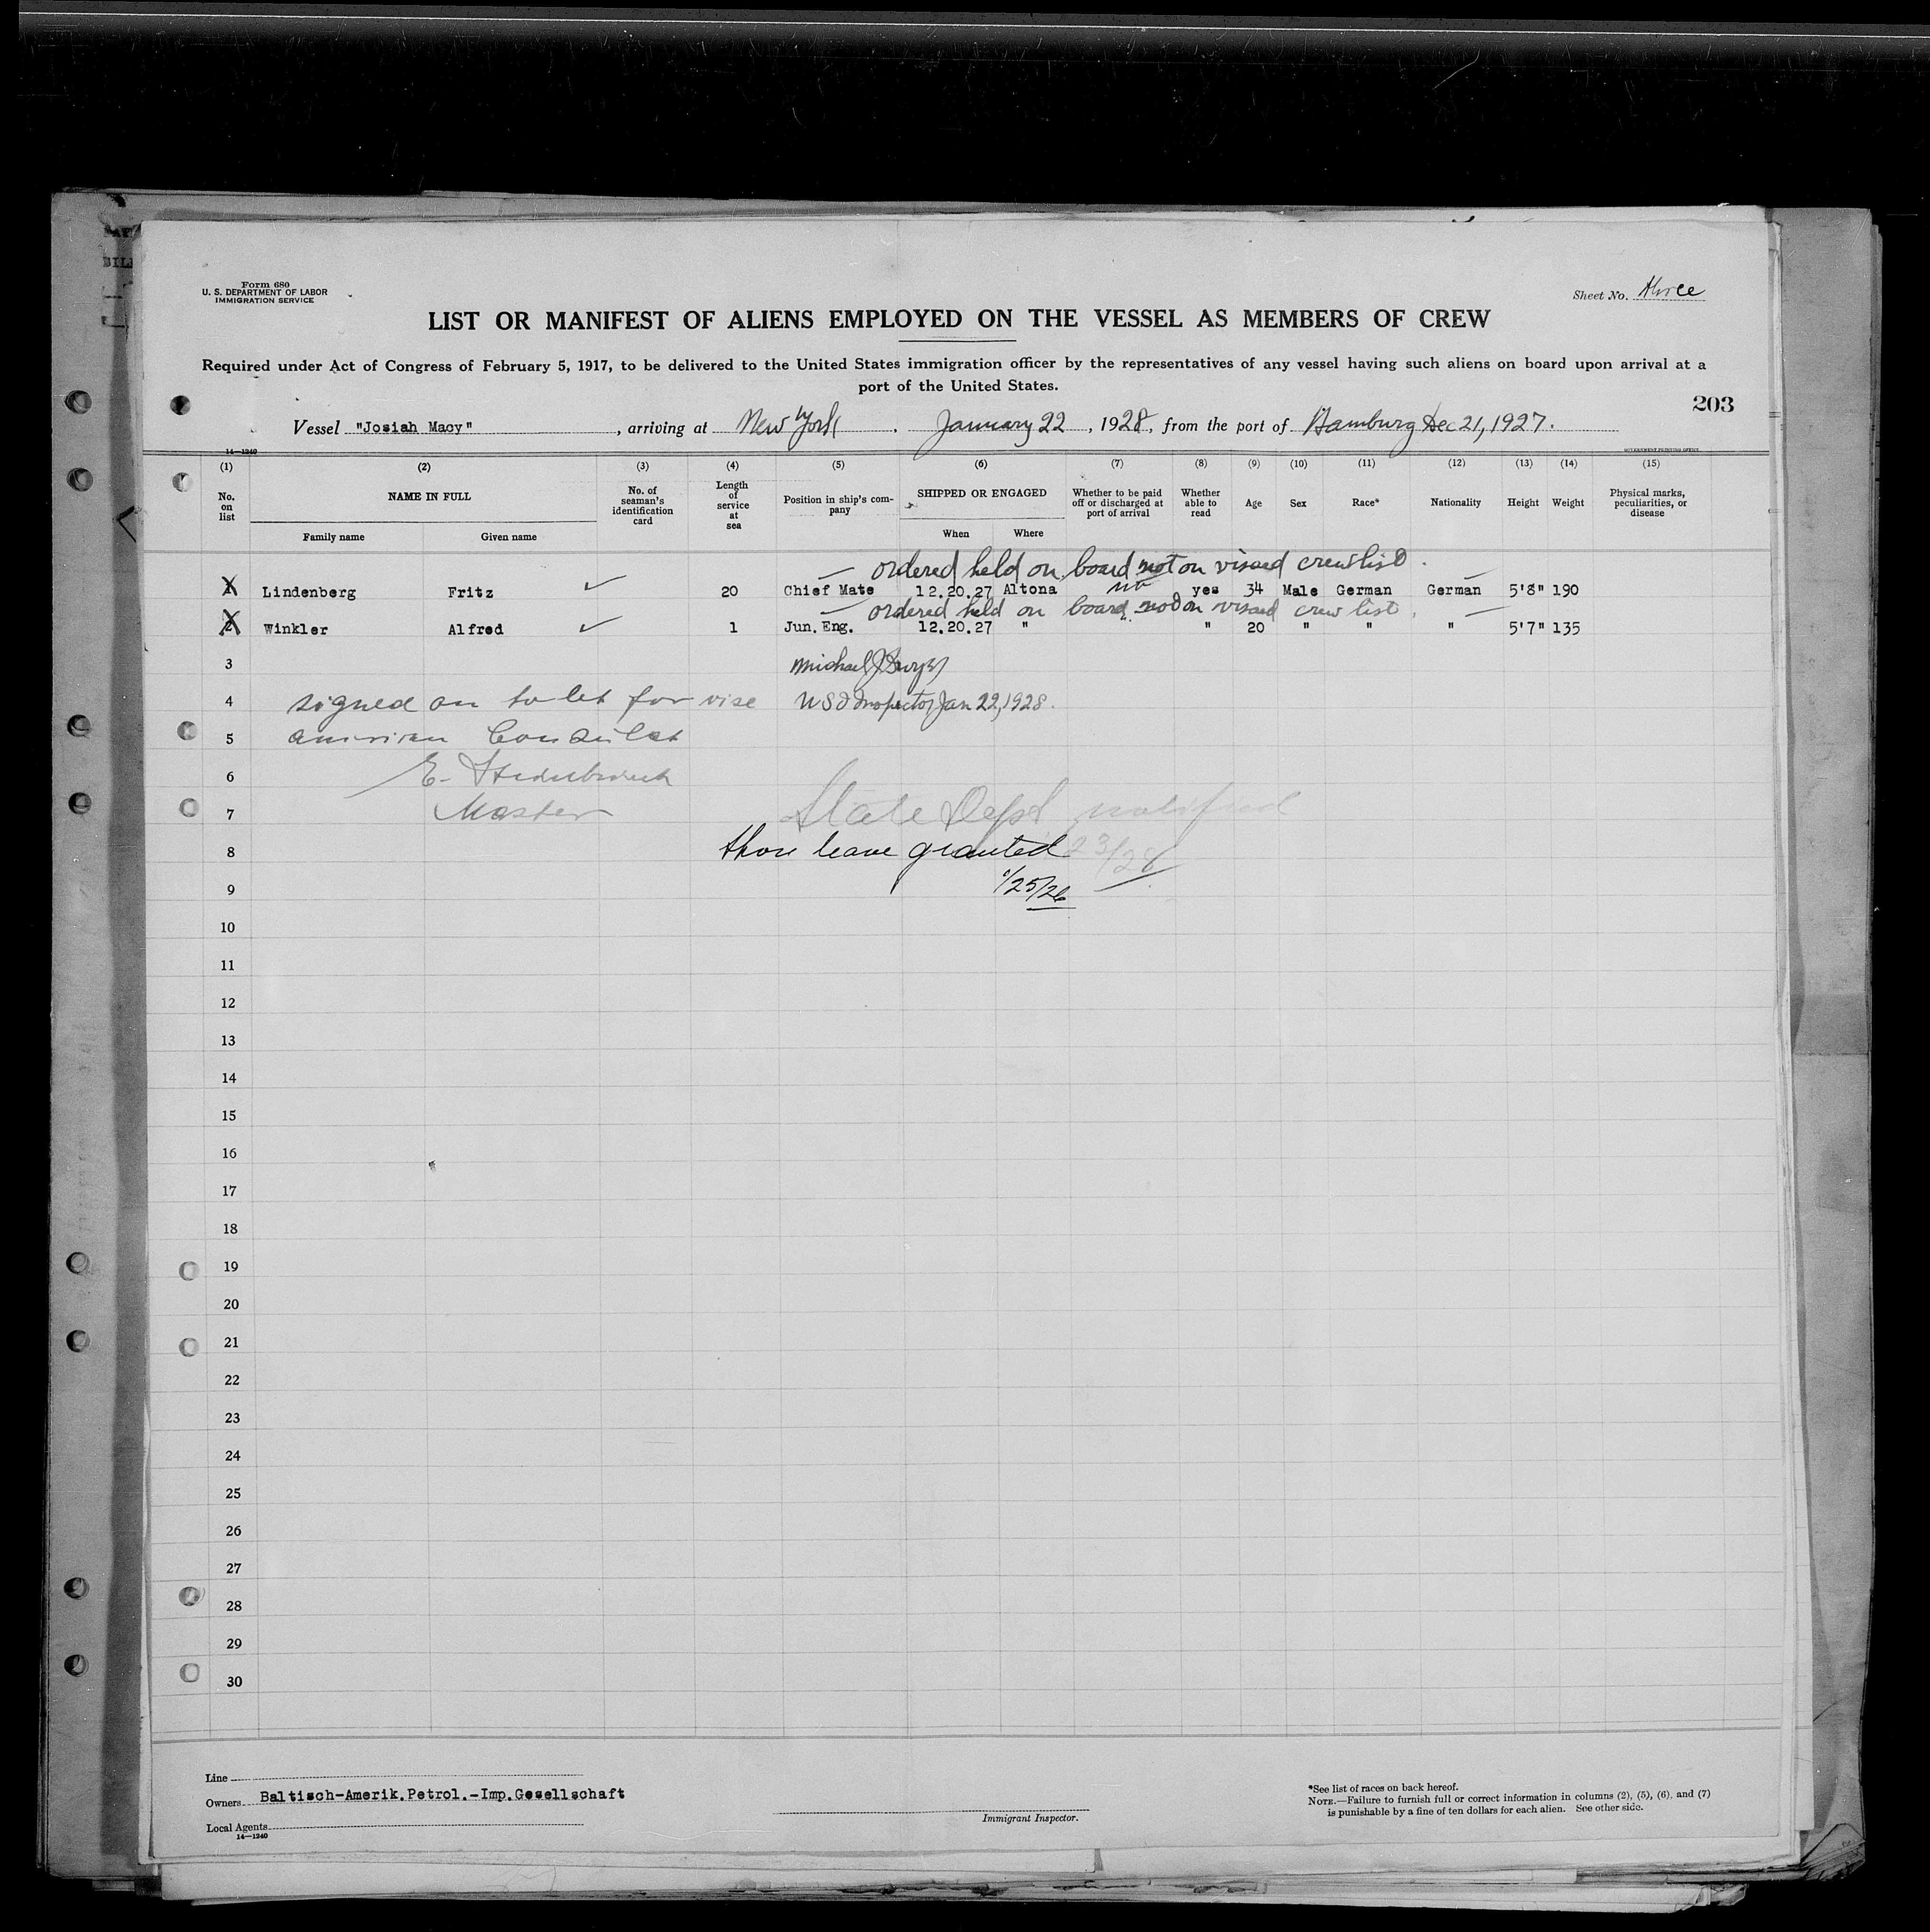 Form 680
U. S. DEPARTMENT OF LABOR
IMMIGRATION SERVICE
Sheet No. three
LIST OR MANIFEST OF ALIENS EMPLOYED ON THE VESSEL AS MEMBERS OF CREW
Required under Act of Congress of February 5, 1917, to be delivered to the United States immigration officer by the representatives of any vessel having such aliens on board upon arrival at a
port of the United States.
203
Vessel "Josiah Macy", arriving at New York, January 22, 1928, from the port of Hamburg Dec 21, 1927.
14—1240
GOVERNMENT PRINTING OFFICE
(1) (2) (3) (4) (5) (6) (7) (8) (9) (10) (11) (12) (13) (14) (15)
No. on list
NAME IN FULL
Family name
Given name
No. of seaman's identification card
Length of service at sea
Position in ship's company
SHIPPED OR ENGAGED
When
Where
Whether to be paid off or discharged at port of arrival
Whether able to read
Age
Sex
Race*
Nationality
Height
Weight
Physical marks, peculiarities, or disease
ordered held on board not on visaed crew list.
1 Lindenberg Fritz ✓ 20 Chief Mate 12.20.27 Altona no yes 34 Male German German 5'8" 190
ordered held on board not on visaed crew list.
2 Winkler Alfred ✓ 1 Jun. Eng. 12.20.27 " " 20 " " " 5'7" 135
3 Michael J
4 signed on to let for vise US Inspector Jan 22, 1928.
5 american Consulat
6 E.
7 Master State Dept notified
8 shore leave granted 23/28
9 1/25/28
10
11
12
13
14
15
16
17
18
19
20
21
22
23
24
25
26
27
28
29
30
Line
Owners Baltisch-Amerik.Petrol.-Imp.Gesellschaft
Local Agents
14—1240
Immigrant Inspector.
*See list of races on back hereof.
NOTE.—Failure to furnish full or correct information in columns (2), (5), (6), and (7)
is punishable by a fine of ten dollars for each alien. See other side.